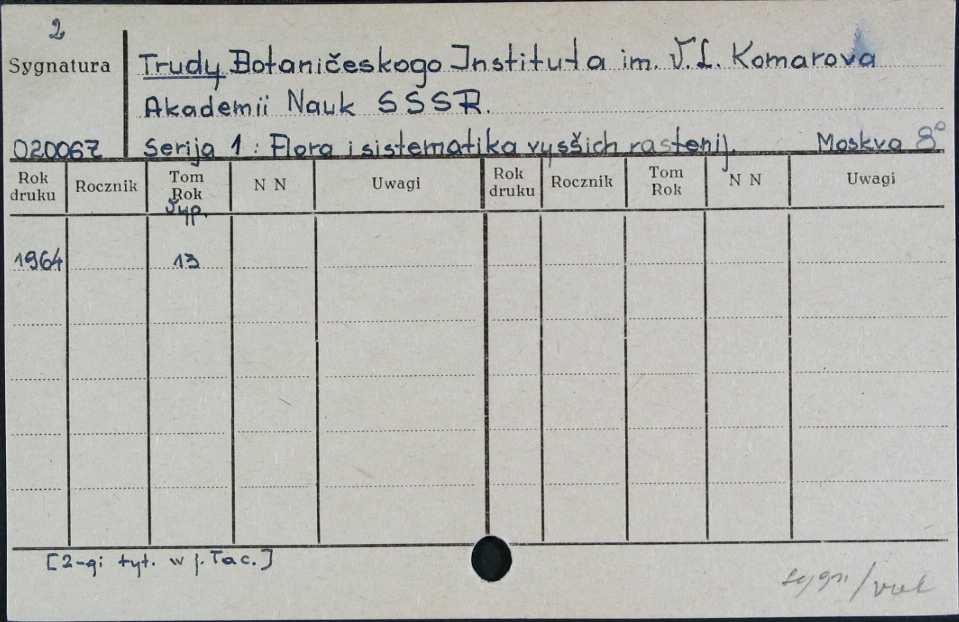 2
Sygnatura
Trudy Botaničeskogo Instituta im. V. L. Komarova
Akademii Nauk SSSR.
020067 Serija 1 : Flora i sistematika vysších rastenij. Moskva 8°
Rok druku Rocznik Tom Rok Vyp. N N Uwagi Rok druku Rocznik Tom Rok N N Uwagi
1964 13
[2-gi tyt. w j. łac.]
sygn /